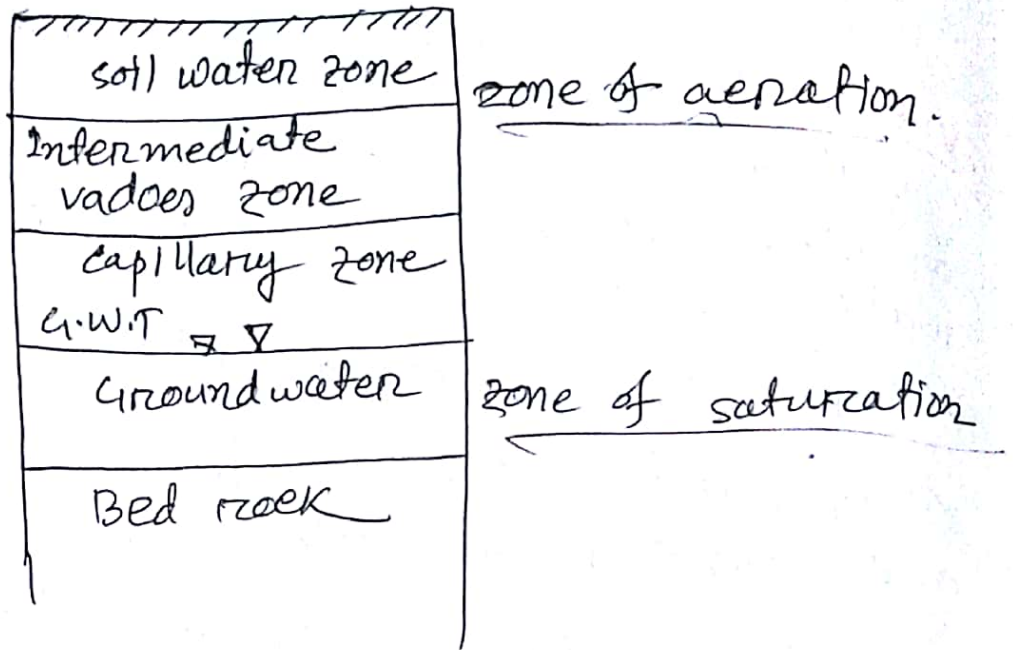 soil water zone
zone of aeration.
Intermediate
vadoes zone
capillary zone
G.W.T
Groundwater
zone of saturation
Bed rock